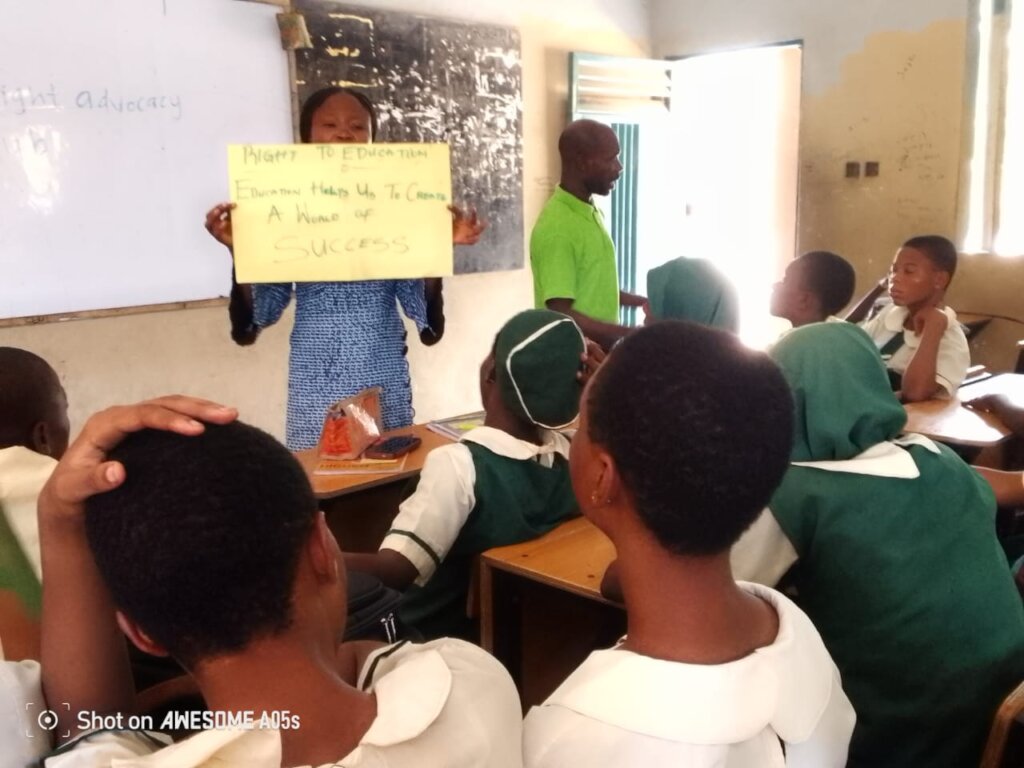 ight advocacy
RIGHT TO EDUCATION
EDUCATION HELPS US TO CREATE
A WORLD OF
SUCCESS
Shot on AWESOME A05s